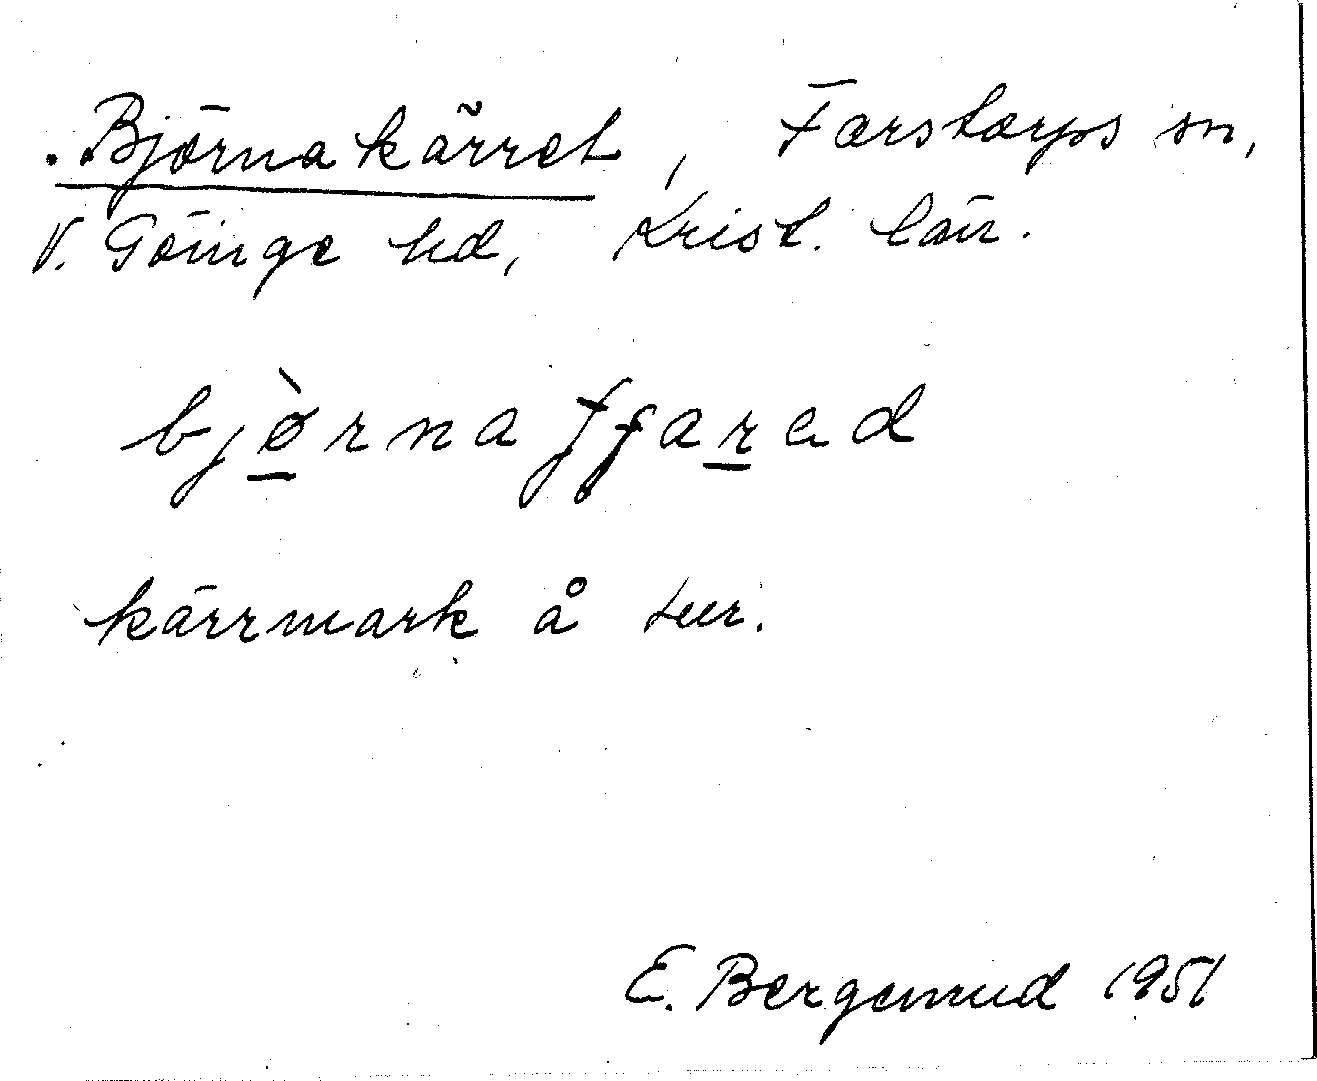 Björnakärret, Farstorps sn,
V. Göinge hd, Krist. län.
bjø̀rnafjarad
kärrmark å tur.
E. Bergemrud 1951